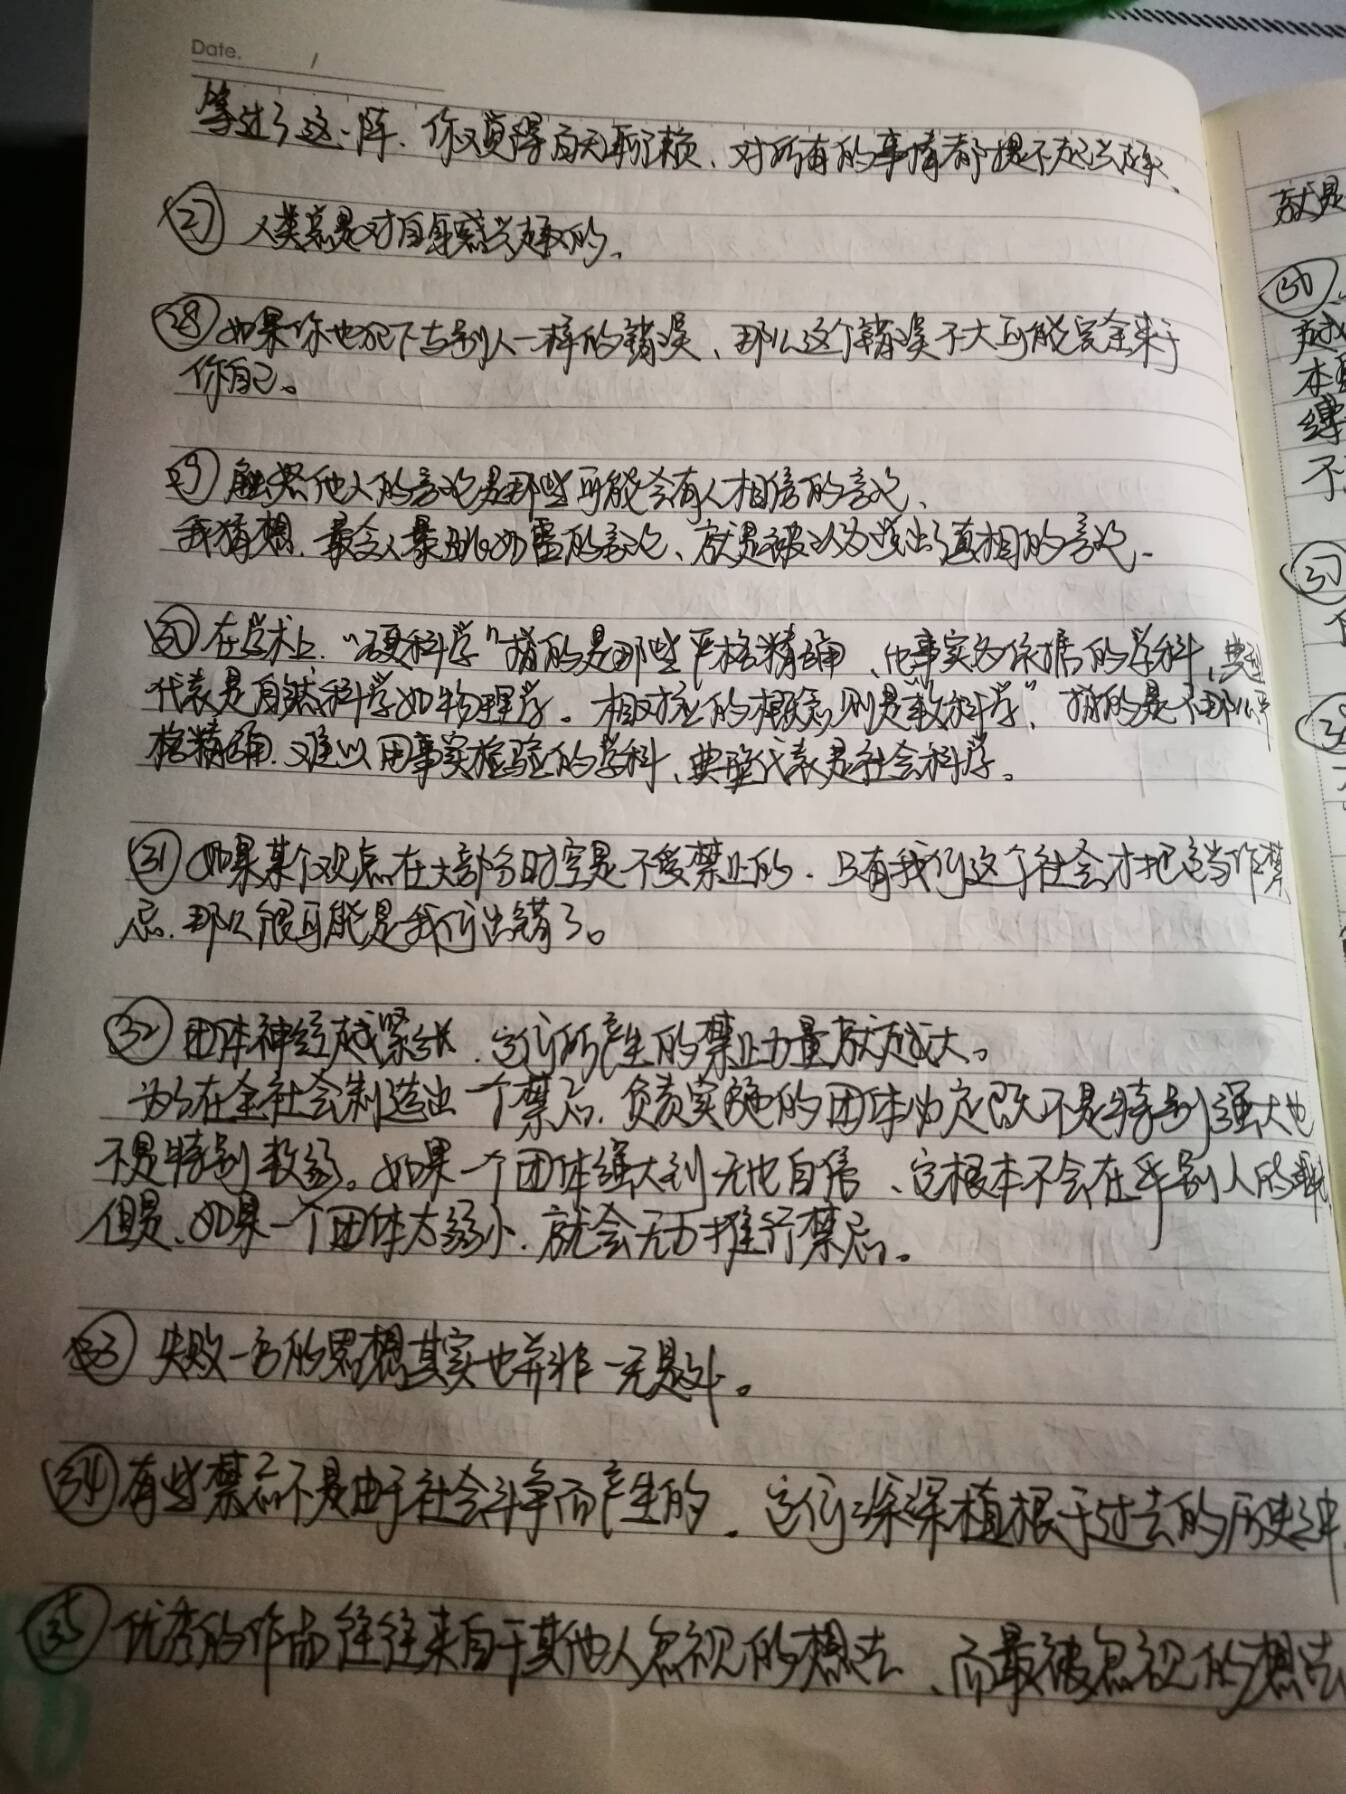 Date.
等过了这一阵、你又觉得百无聊赖、对所有的事情都提不起兴趣、
㉗ 人类总是对自身感兴趣的、
㉘ 如果你也犯下与别人一样的错误、那么这个错误不大可能完全来于
你自己。
㉙ 触怒他人的言论是那些可能会有人相信的言论、
我猜想、最令人暴跳如雷的言论、就是被认为说出了真相的言论、
㉚ 在学术上、"硬科学"指的是那些严格精确、以事实为依据的学科、典型
代表是自然科学如物理学。相对应的概念则是"软科学"、指的是不那么严
格精确、难以用事实检验的学科、典型代表是社会科学。
㉛ 如果某个观点在大部分时空是不受禁止的、只有我们这个社会才把它当作禁
忌、那么很可能是我们出错了。
㉜ 团体神经越紧张、它们所产生的禁止力量就越大。
为了在全社会制造出一个禁忌、负责实施的团体必定既不是特别强大也
不是特别软弱。如果一个团体强大到无比自信、它根本不会在乎别人的
但是、如果一个团体太弱小、就会无力推行禁忌。
㉝ 失败一方的思想其实也并非一无是处。
㉞ 有些禁忌不是由于社会斗争而产生的、它们深深植根于过去的历史之中
㉟ 优秀的作品往往来自于其他人忽视的想法、而最被忽视的想法
就是
㊱
越
本
缚
不
㊲
㊳